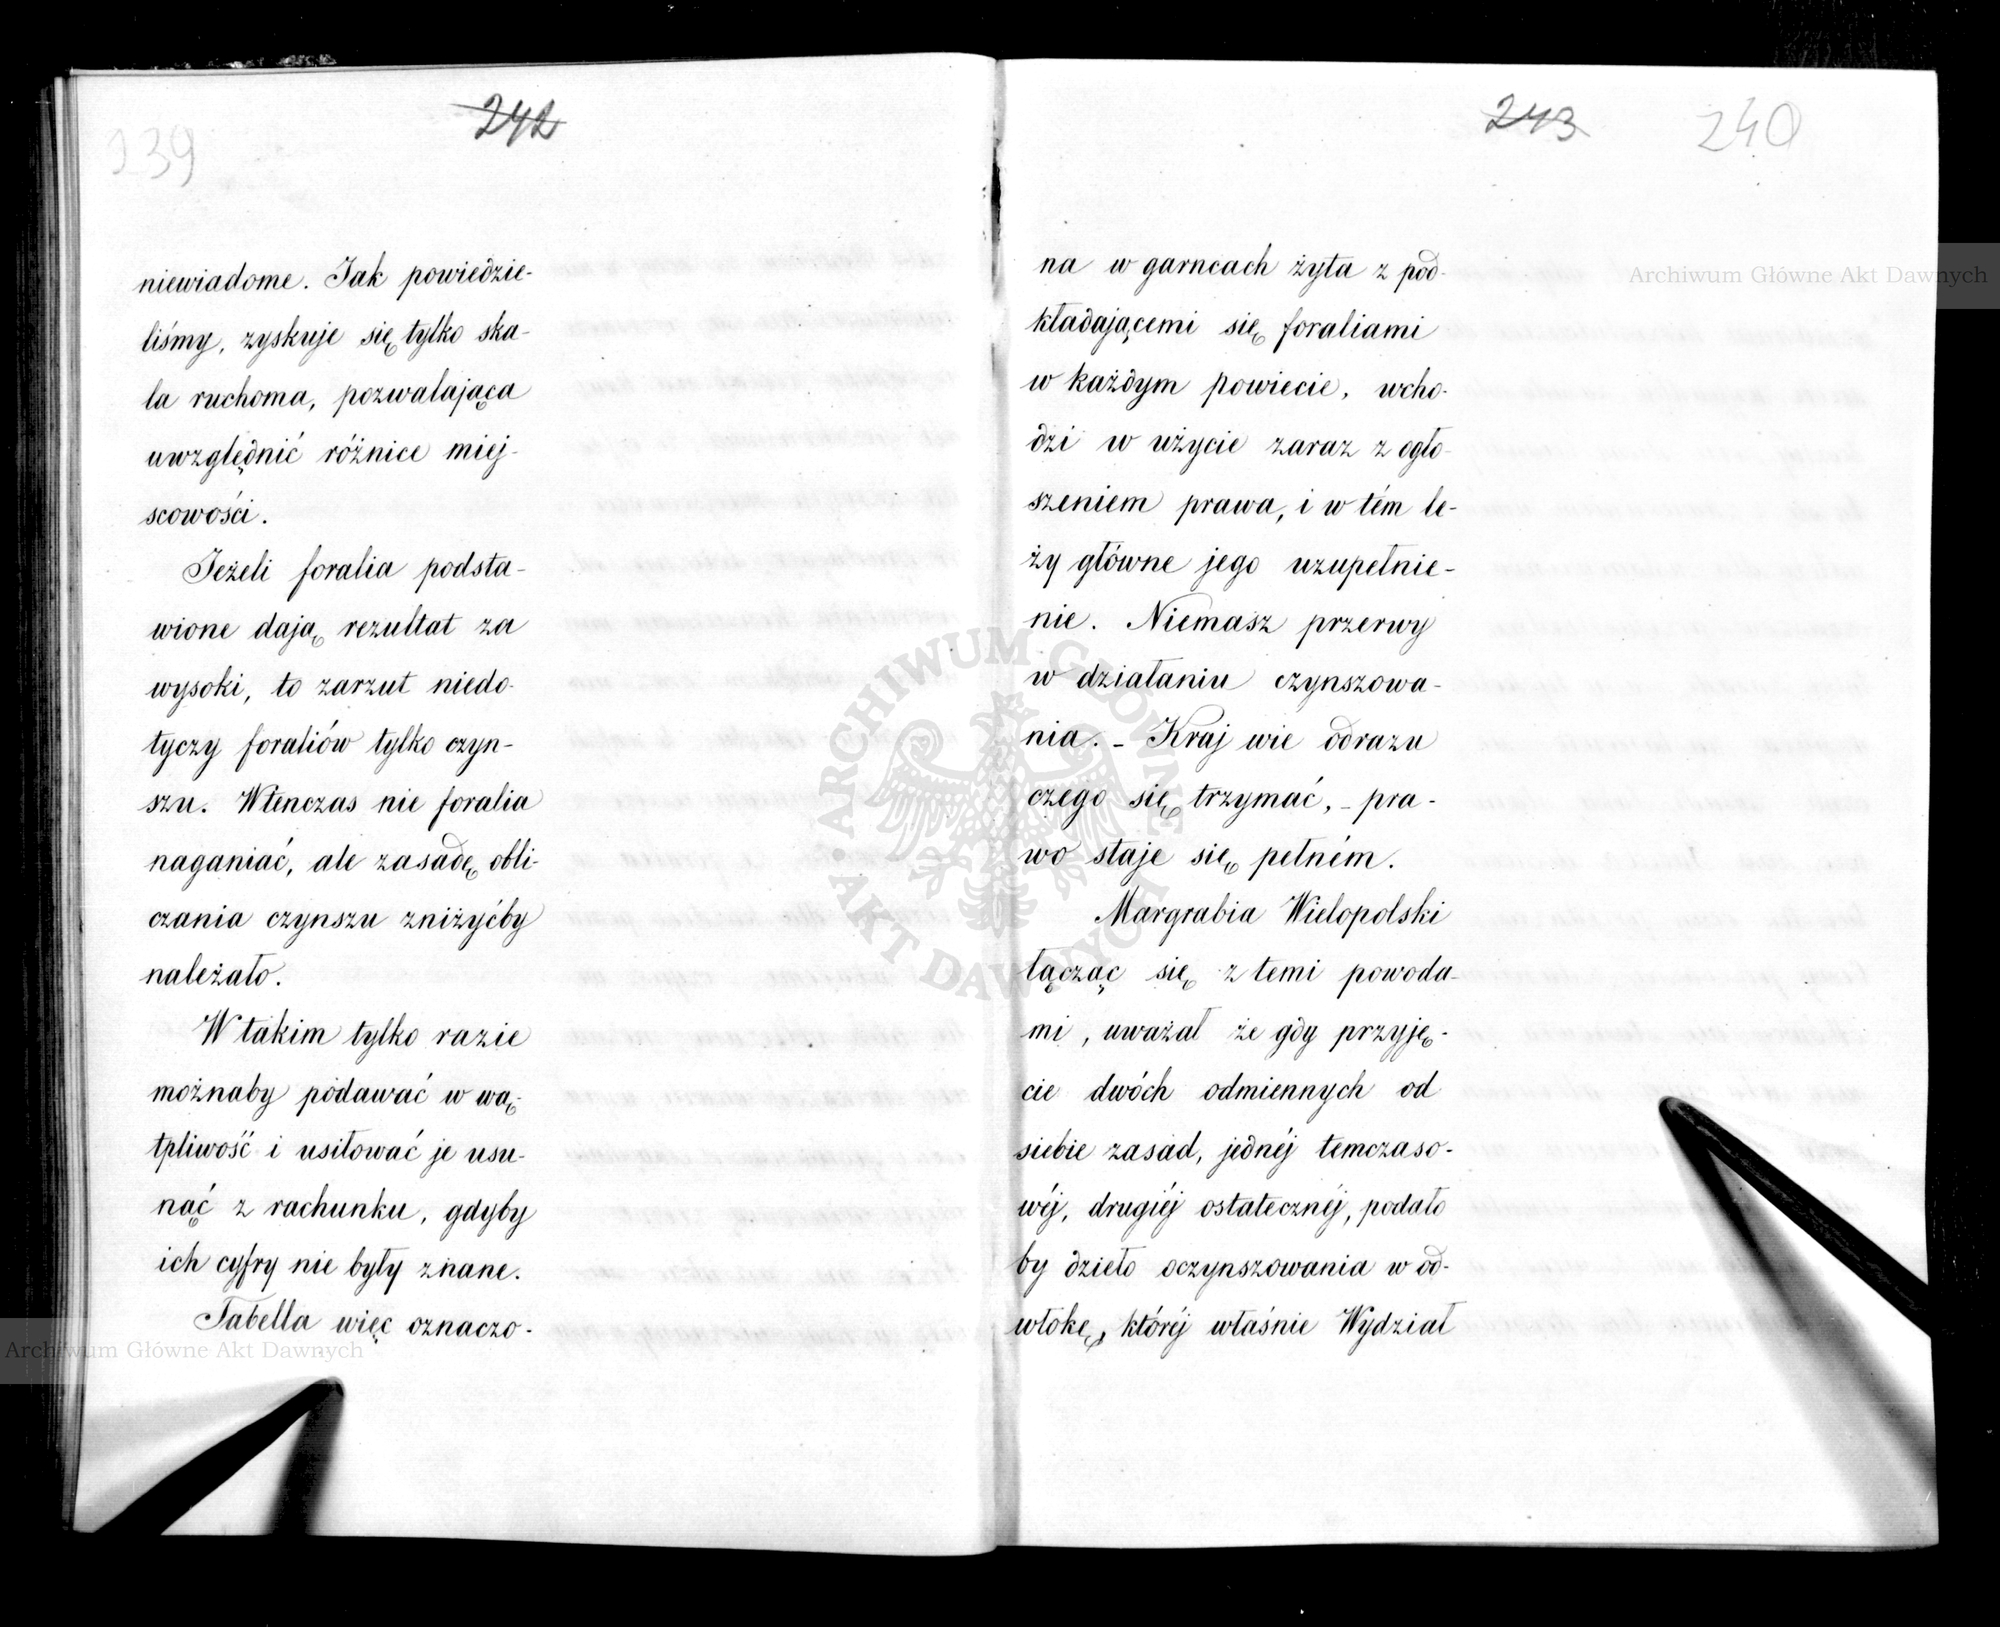 239
242
niewiadome. Jak powiedzie-
liśmy, zyskuje się tylko ska-
la ruchoma, pozwalająca
uwzględnić różnice miej-
scowości.
Jeżeli foralia podsta-
wione dają rezultat za
wysoki, to zarzut niedo-
tyczy foraliów tylko czyn-
szu. Wtenczas nie foralia
naganiać, ale zasadę obli-
czania czynszu zniżyćby
należało.
W takim tylko razie
możnaby podawać w wą-
tpliwość i usiłować je usu-
nąć z rachunku, gdyby
ich cyfry nie były znane.
Tabella więc oznaczo-
243
240
na w garncach żyta z pod-
kładającemi się foraliami
w każdym powiecie, wcho-
dzi w użycie zaraz z ogło-
szeniem prawa, i w tém le-
ży główne jego uzupełnie-
nie. Niemasz przerwy
w działaniu czynszowa-
nia. – Kraj wie odrazu
czego się trzymać, – pra-
wo staje się pełném.
Margrabia Wielopolski
łącząc się z temi powoda-
mi, uważał że gdy przyję-
cie dwóch odmiennych od
siebie zasad, jednéj temczaso-
wéj, drugiéj ostatecznéj, podało
by dzieło oczynszowania w od-
włokę, któréj właśnie Wydział
Archiwum Główne Akt Dawnych
Archiwum Główne Akt Dawnych
ARCHIWUM GŁÓWNE • AKT DAWNYCH •